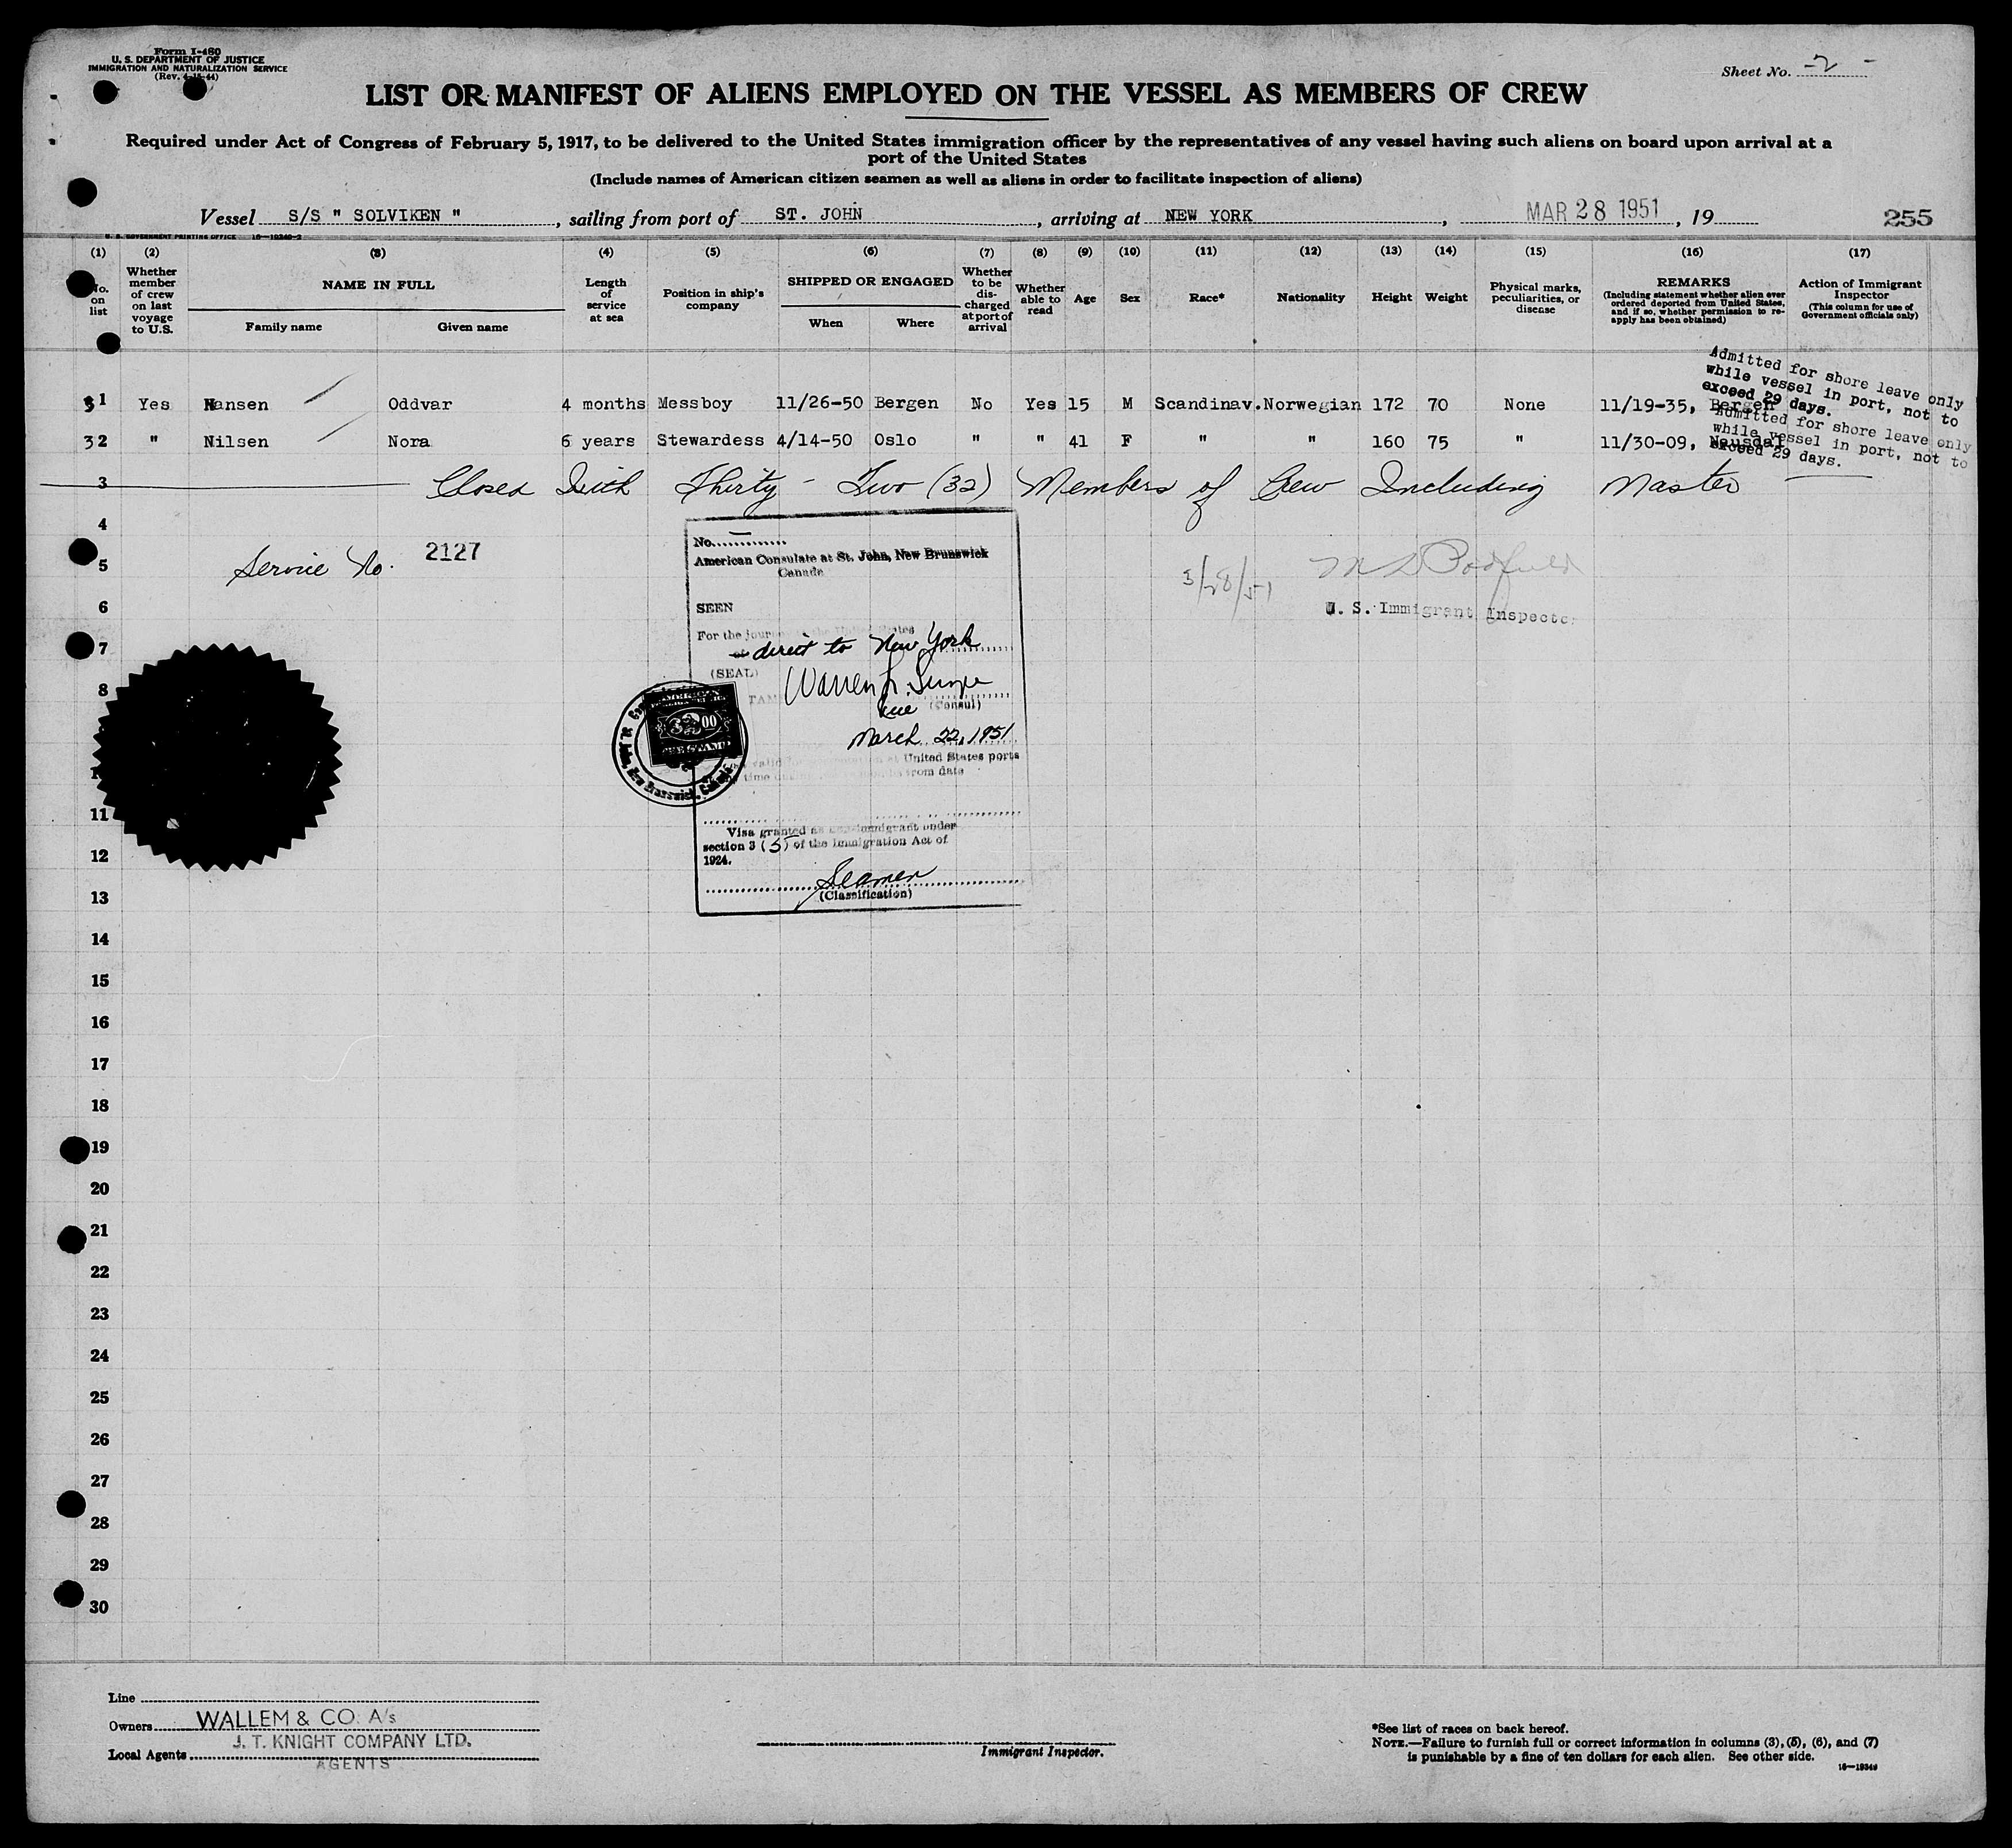 Form I-480
U. S. DEPARTMENT OF JUSTICE
IMMIGRATION AND NATURALIZATION SERVICE
(Rev. 4-15-44)
Sheet No. -2-
LIST OR MANIFEST OF ALIENS EMPLOYED ON THE VESSEL AS MEMBERS OF CREW
Required under Act of Congress of February 5, 1917, to be delivered to the United States immigration officer by the representatives of any vessel having such aliens on board upon arrival at a
port of the United States
(Include names of American citizen seamen as well as aliens in order to facilitate inspection of aliens)
Vessel S/S " SOLVIKEN ", sailing from port of ST. JOHN, arriving at NEW YORK, MAR 28 1951, 19 255
U. S. GOVERNMENT PRINTING OFFICE 16—19340-2
(1) (2) (3) (4) (5) (6) (7) (8) (9) (10) (11) (12) (13) (14) (15) (16) (17)
No. on list
Whether member of crew on last voyage to U.S.
NAME IN FULL
Family name Given name
Length of service at sea
Position in ship's company
SHIPPED OR ENGAGED
When Where
Whether to be discharged at port of arrival
Whether able to read
Age
Sex
Race*
Nationality
Height
Weight
Physical marks, peculiarities, or disease
REMARKS
(Including statement whether alien ever ordered deported from United States, and if so, whether permission to reapply has been obtained)
Action of Immigrant Inspector
(This column for use of Government officials only)
31 Yes Hansen Oddvar 4 months Messboy 11/26-50 Bergen No Yes 15 M Scandinav. Norwegian 172 70 None 11/19-35, Bergen
Admitted for shore leave only
while vessel in port, not to
exceed 29 days.
32 " Nilsen Nora 6 years Stewardess 4/14-50 Oslo " " 41 F " " 160 75 " 11/30-09,
Admitted for shore leave only
while vessel in port, not to
exceed 29 days.
3 Closed With Thirty - Two (32) Members of Crew Including Master
4
5 Service No. 2127
6
7
8
11
12
13
14
15
16
17
18
19
20
21
22
23
24
25
26
27
28
29
30
No.
American Consulate at St. John, New Brunswick
Canada
SEEN
For the journey to the United States
direct to New York
(SEAL)
Warren
(Consul)
March 22, 1951
United States ports
time from date
Visa granted as non-immigrant under
section 3 (5) of the Immigration Act of
1924.
Seamen
(Classification)
3/28/51
U. S. Immigrant Inspector
Line
Owners WALLEM & CO. A/s
J. T. KNIGHT COMPANY LTD.
Local Agents
AGENTS
Immigrant Inspector.
*See list of races on back hereof.
NOTE.—Failure to furnish full or correct information in columns (3), (5), (6), and (7)
is punishable by a fine of ten dollars for each alien. See other side.